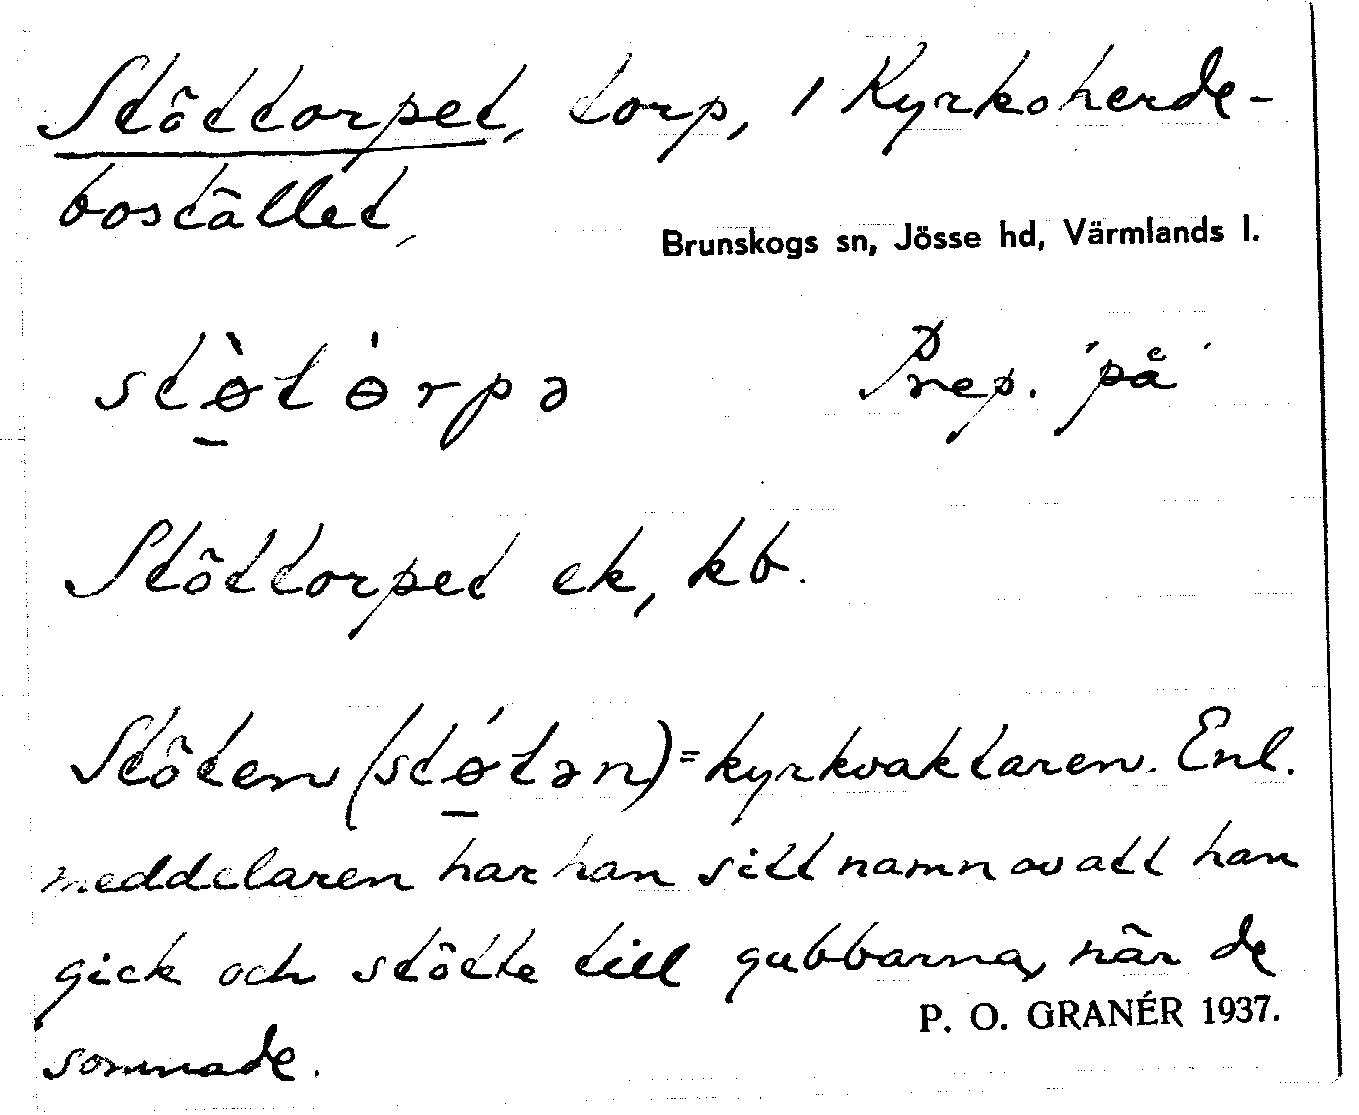 Stöttorpet, torp, i Kyrkoherde-
bostället,
Brunskogs sn, Jösse hd, Värmlands l.
stø̱̀tɵ́rpə Prep. ´på´
Stöttorpet ek, kb.
Stöten (stǿ̱tən) = kyrkvaktaren. Enl.
meddelaren har han sitt namn av att han
gick och stötte till gubbarna, när de
somnade.
P. O. GRANÉR 1937.